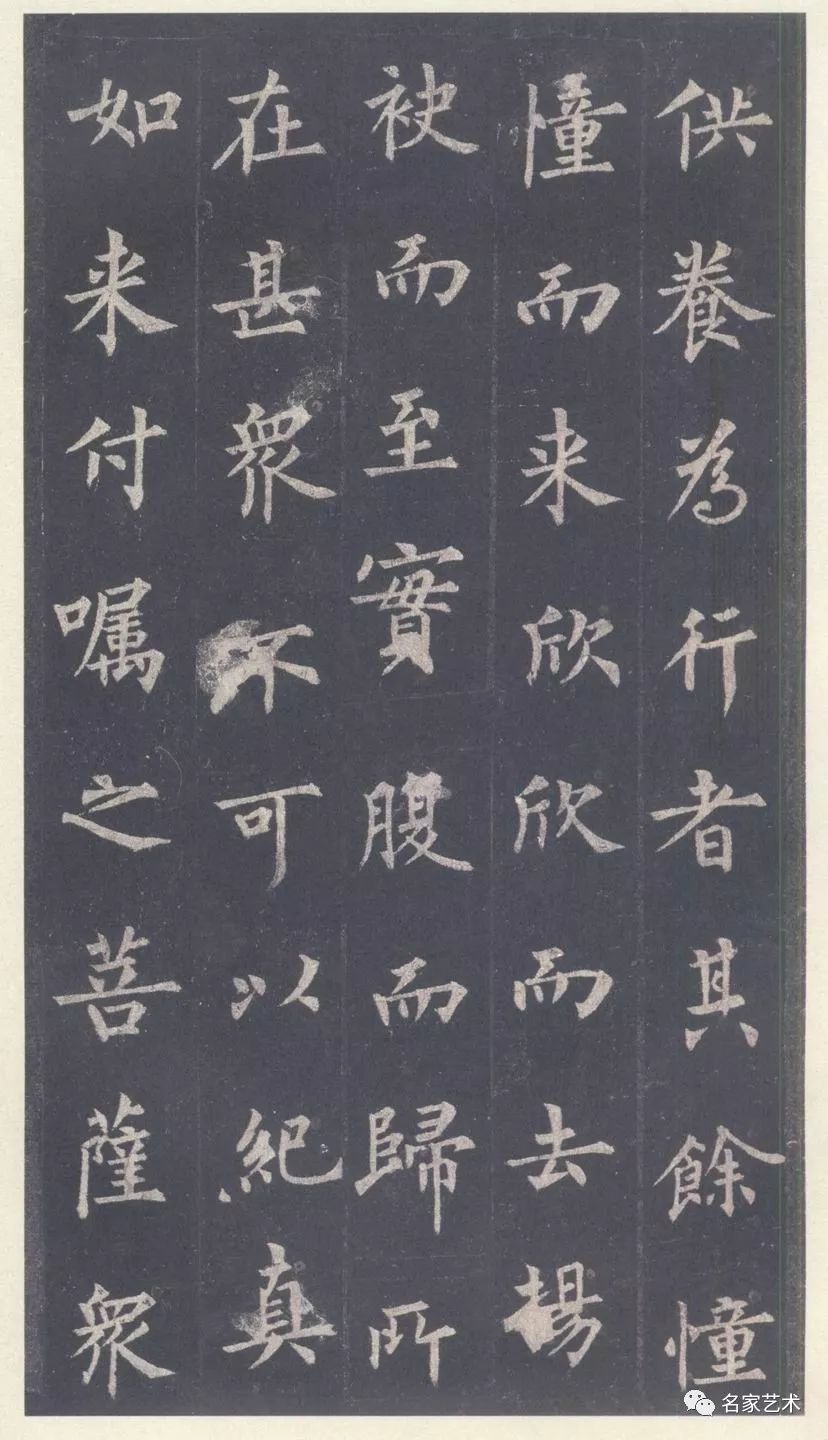 供養為行者其餘憧
憧而来欣欣而去揚
袂而至實腹而歸所
在甚衆不可以紀真
如来付嘱之菩薩衆
名家艺术